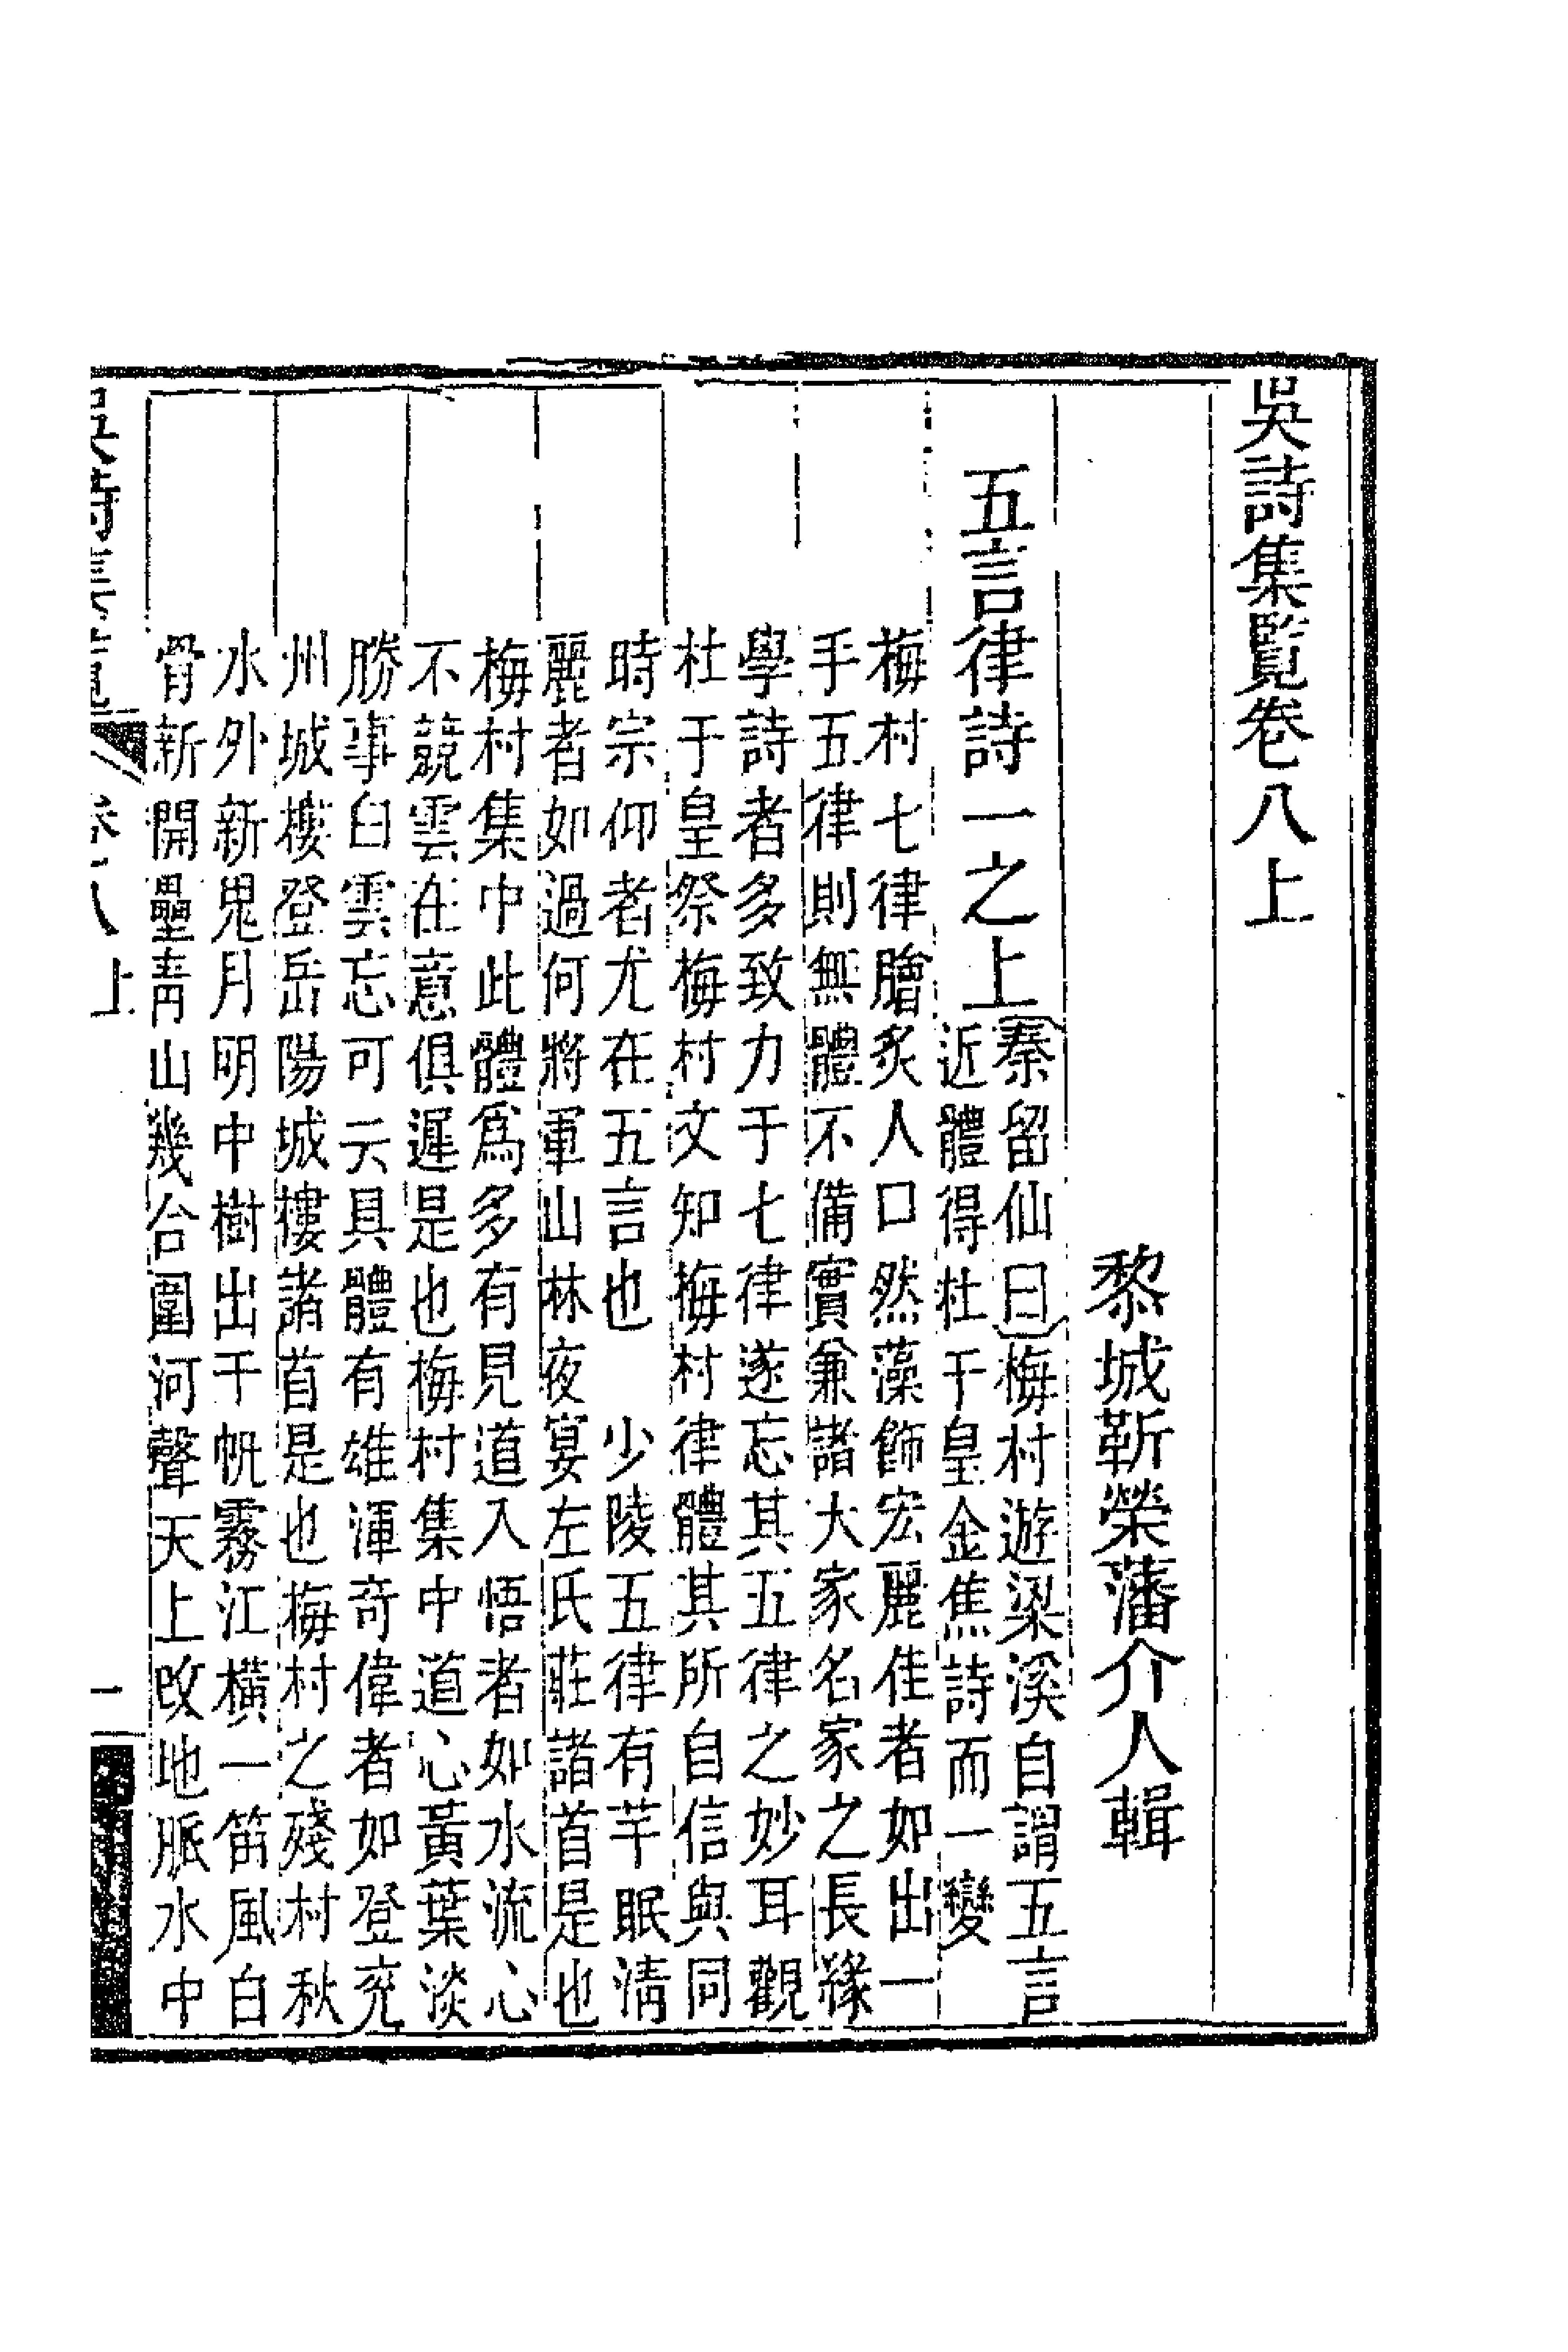 吳詩集覽卷八上
黎城靳榮藩介人輯
五言律詩一之上
秦留仙曰梅村遊梁溪自謂五言
近體得杜于皇金焦詩而一變
梅村七律膾炙人口然藻飾宏麗佳者如出一
手五律則無體不備實兼諸大家名家之長緣
學詩者多致力于七律遂忘其五律之妙耳觀
杜于皇祭梅村文知梅村律體其所自信與同
時宗仰者尤在五言也　少陵五律有芊眠淸
麗者如過何將軍山林夜宴左氏莊諸首是也
梅村集中此體爲多有見道入悟者如水流心
不競雲在意俱遲是也梅村集中道心黃葉淡
勝事白雲忘可云具體有雄渾奇偉者如登兖
州城樓登岳陽城樓諸首是也梅村之殘村秋
水外新鬼月明中樹出千帆霧江橫一笛風白
骨新開壘靑山幾合圍河聲天上改地脈水中
吳詩集覽
卷八上
一